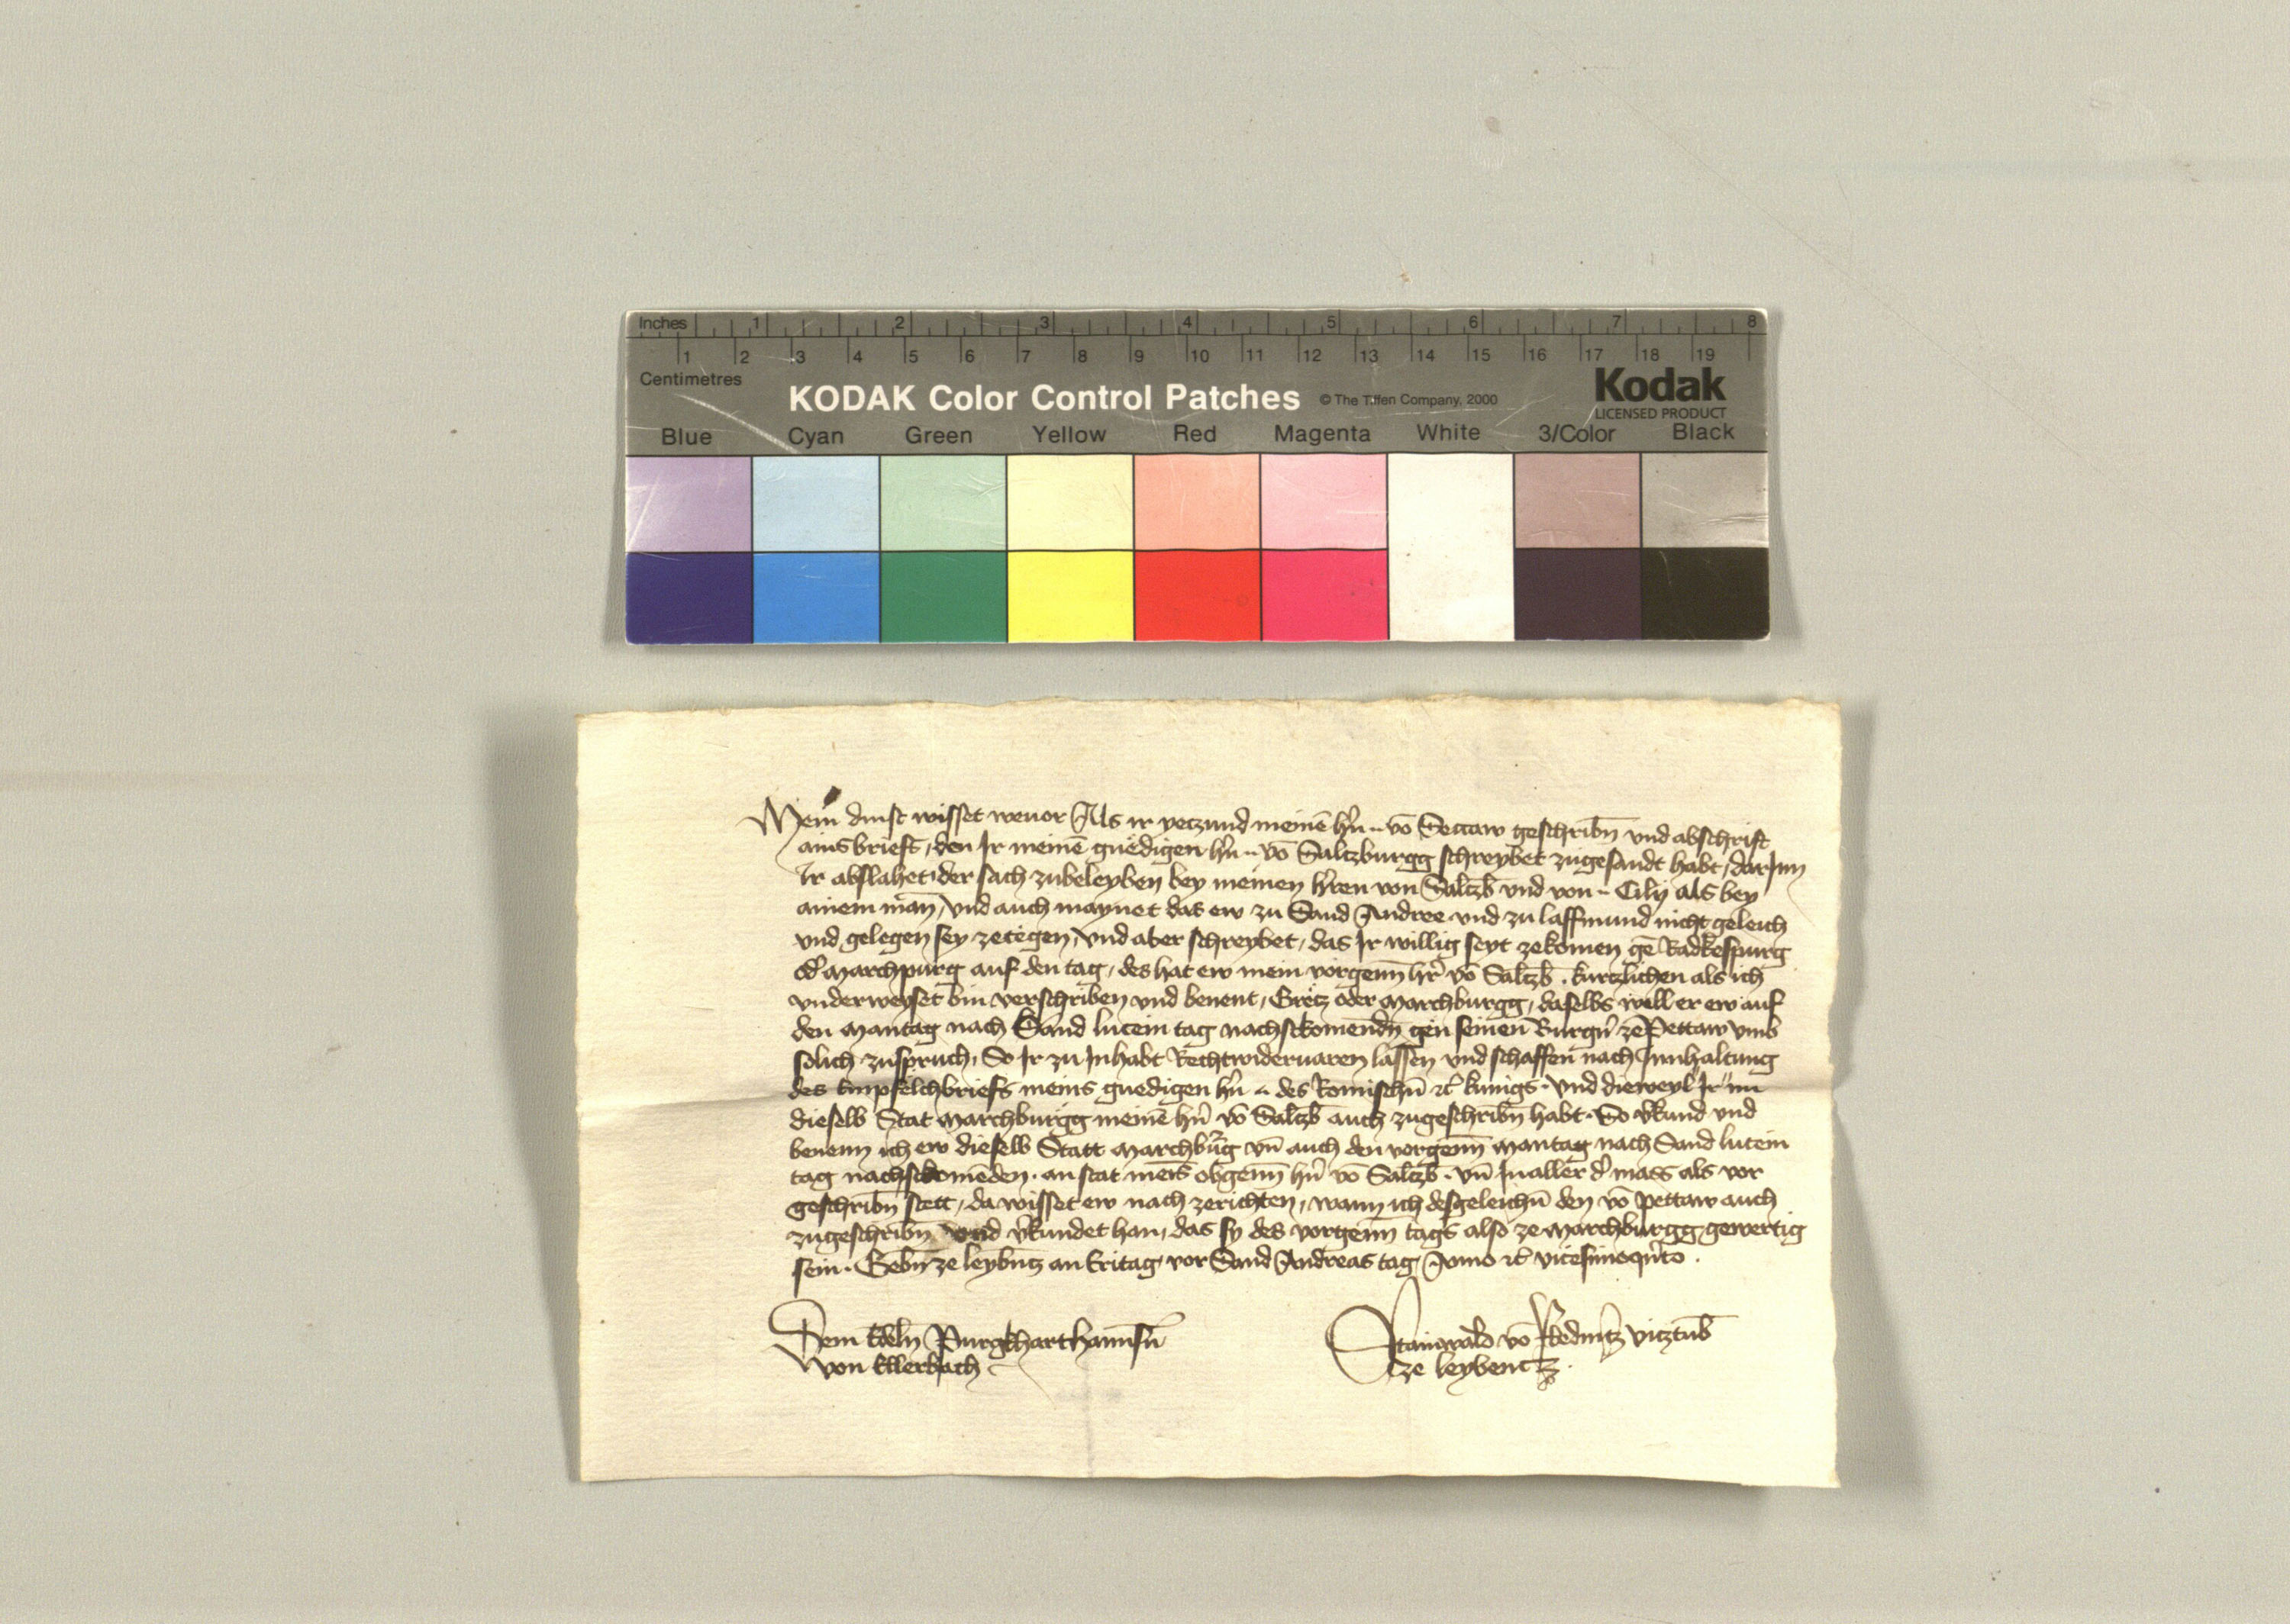 Inches 1 2 3 4 5 6 7 8
1 2 3 4 5 6 7 8 9 10 11 12 13 14 15 16 17 18 19
Centimetres
KODAK Color Control Patches © The Tiffen Company, 2000
Kodak
LICENSED PRODUCT
Blue Cyan Green Yellow Red Magenta White 3/Color Black
Mein dinst wisset weuor Als ir yeczund meinē hr̄n vō Seccaw geschribn̄ vnd abschrift
ains briefs, den Ir meinē gnedigen hr̄n vō Salczburgg schreybet zugesandt habt, darInn
Ir abslahet der sach zubeleyben bey meinen hr̄ren von Salczb̄ vnd von Cily als bey
ainem man, vnd auch maynet das ew zu Sand Andree vnd zu laffmund nicht geleich
vnd gelegen sey zetegen, vnd aber schreybet, das Ir willig seyt zekomen gē Radkespurg
od̄ Marchpurg auf den tag, des hat ew mein vorgenn̄ hr̄ vō Salczb̄ . kurczlichen als ich
vnderweyset bin verschriben vnd benent, Grecz oder Marchburgg, daselbs well er ew auf
den Mantag nach Sand lucein tag nachstkomendn̄ gen seinen Burgn̄ ze Pettaw vmb
solich zuspruch, So Ir zu In habt Rechtwideruaren lassen vnd schaffen nach Innhaltung
des Empfelchbriefs meins gnedigen hr̄n des Romischn̄ ꝛc̄ kunigs . vnd dieweyl Ir im
dieselb Stat Marchburgg meinē hr̄n vō Salczb̄ auch zugeschribn̄ habt . So v̄kund vnd
benenn ich ew dieselb Statt Marchbūrg vn̄ auch den vorgenn̄ Mantag nach Sand lucein
tag nachstkomēden . an stat meīs obgenn̄ hr̄n vō Salczb̄ . vn̄ In aller d̄ mass als vor
geschribn̄ stett, da wisset ew nach zerichten, wann ich desgeleichn̄ den vō Pettaw auch
zugeschribn̄ vnd v̄kundet han, das sy des vorgenn̄ tags also ze Marchburgg gewertig
sein . Gebn̄ ze leybn̄cz an Eritag vor Sand Andreas tag Anno ꝛc̄ vicesimoqn̄to .
Dem Edeln̄ Purgkhart hannsn̄
von Ellerbach
vō vicztūb
ze leybencz .